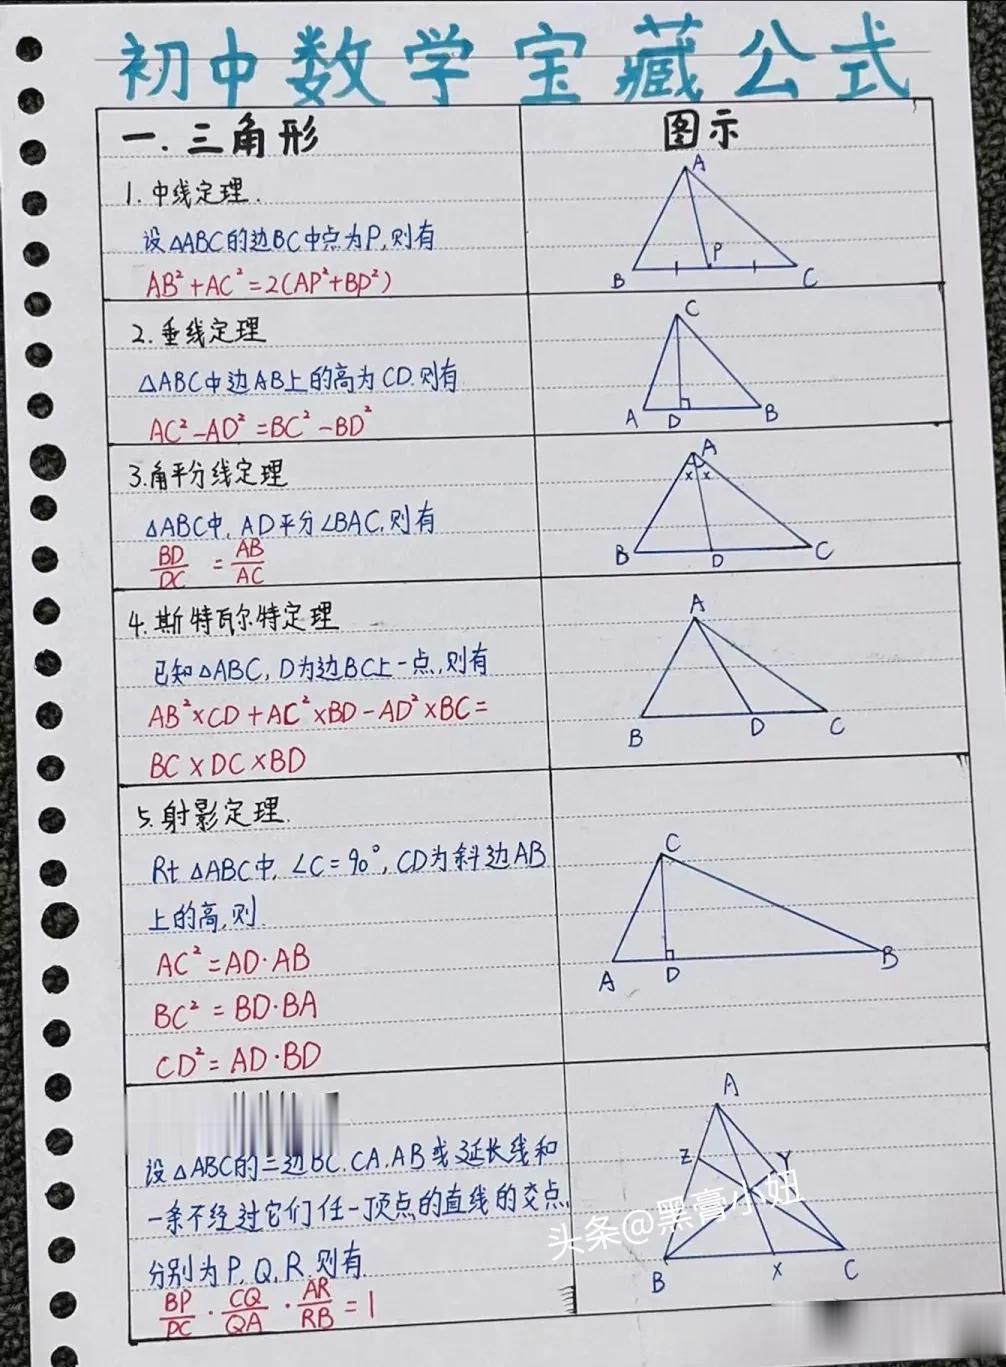 初中数学宝藏公式
一.三角形
图示
1.中线定理.
设△ABC的边BC中点为P,则有
AB²+AC²=2(AP²+BP²)
A
B
P
C
2.垂线定理
△ABC中边AB上的高为CD.则有
AC²-AD²=BC²-BD²
C
A
D
B
3.角平分线定理
△ABC中,AD平分∠BAC,则有
BD/DC = AB/AC
A
x x
B
D
C
4.斯特瓦尔特定理
已知△ABC,D为边BC上一点,则有
AB²×CD+AC²×BD-AD²×BC=
BC×DC×BD
A
B
D
C
5.射影定理.
Rt △ABC中,∠C=90°,CD为斜边AB
上的高,则.
AC²=AD·AB
BC²=BD·BA
CD²=AD·BD
C
A
D
B
设△ABC的三边BC.CA.AB或延长线和
一条不经过它们任一顶点的直线的交点
分别为P,Q,R.则有
BP/PC · CQ/QA · AR/RB = 1
A
Z
Y
B
X
C
头条@黑膏小妞